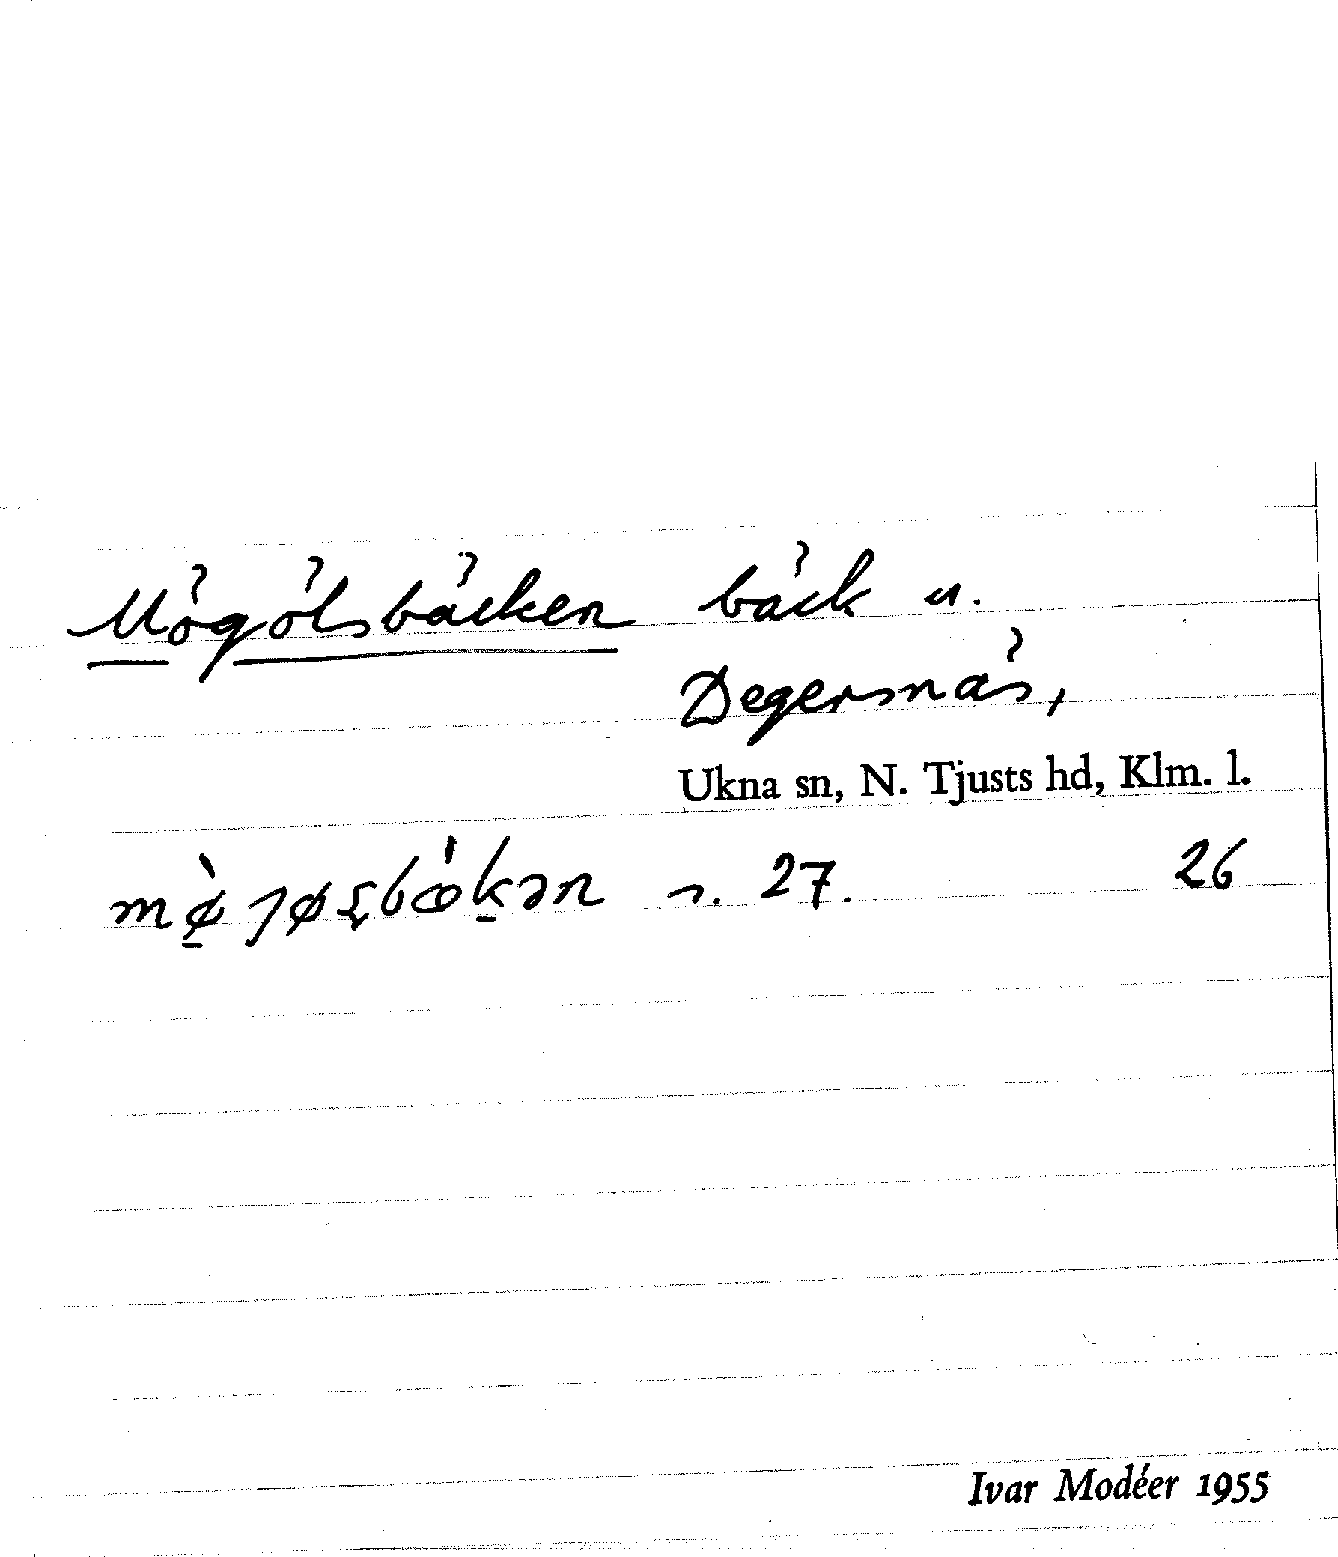 Mögölsbäcken bäck u.
Degersnäs,
Ukna sn, N. Tjusts hd, Klm. l.
s. 27. 26
Ivar Modéer 1955